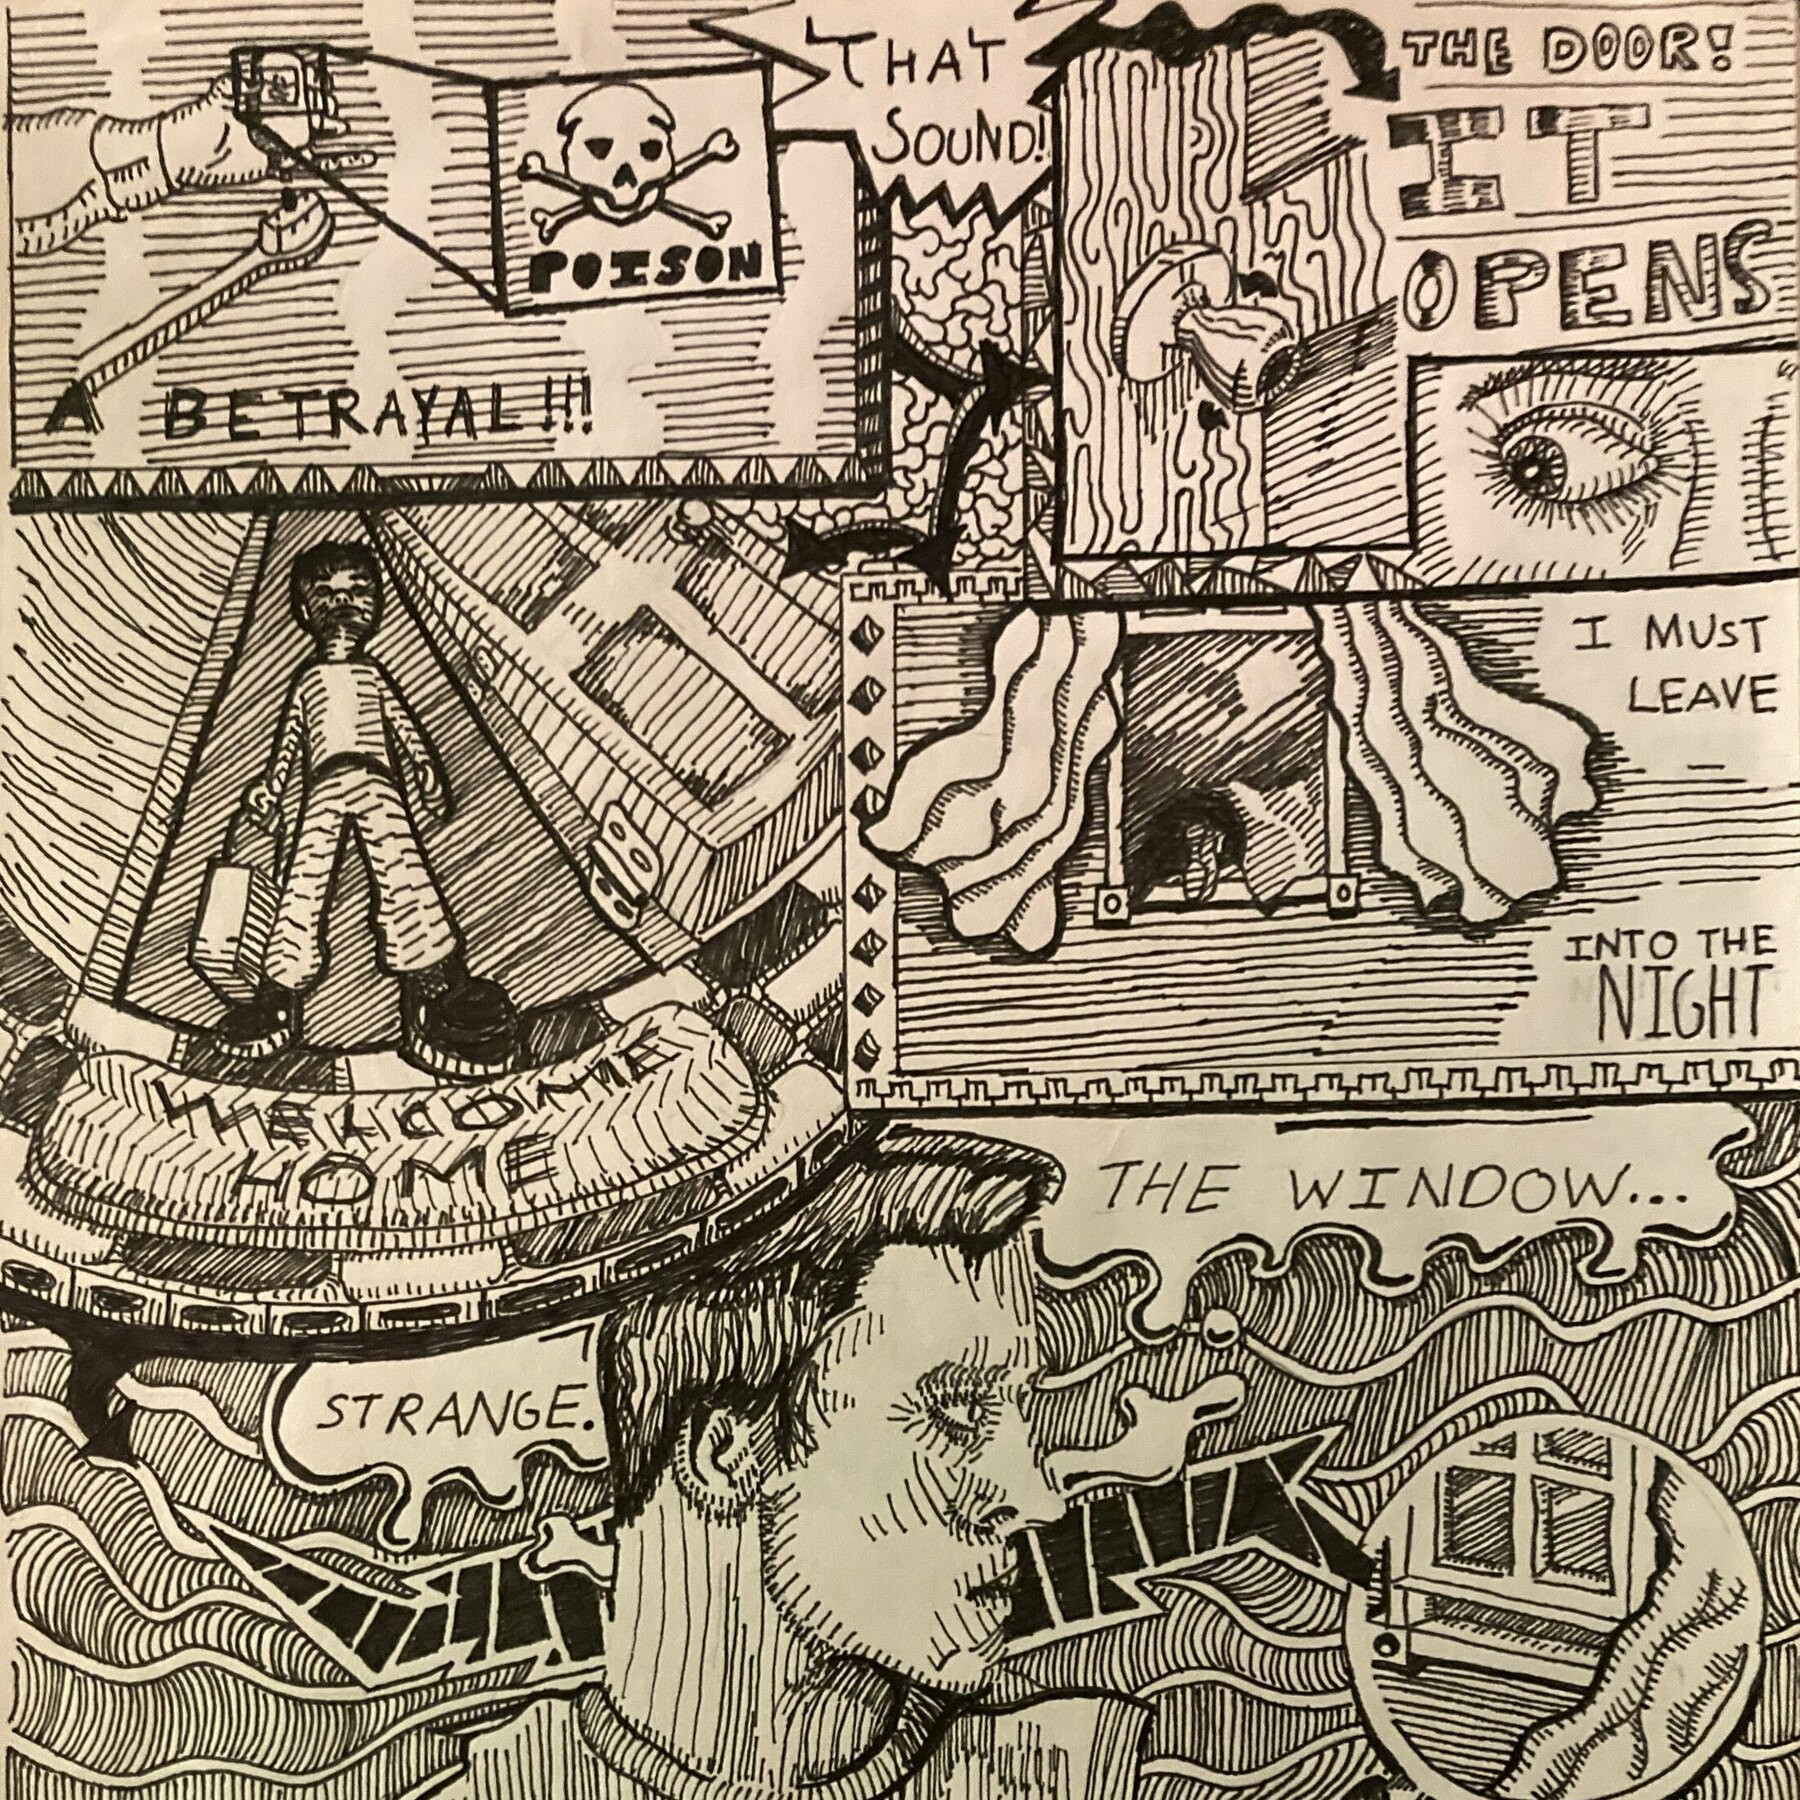 POISON
A BETRAYAL!!!
THAT
SOUND!
THE DOOR!
IT
OPENS
I MUST
LEAVE
INTO THE
NIGHT
WELCOME
HOME
THE WINDOW...
STRANGE.